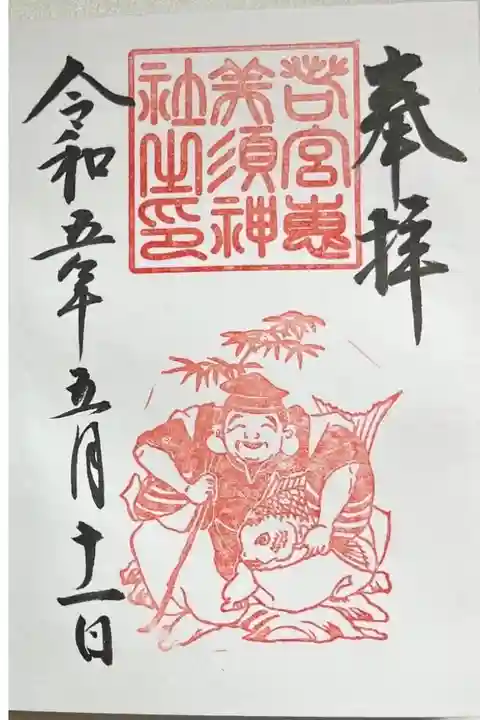 奉拝
若宮恵
美須神
社之印
令和五年五月十一日